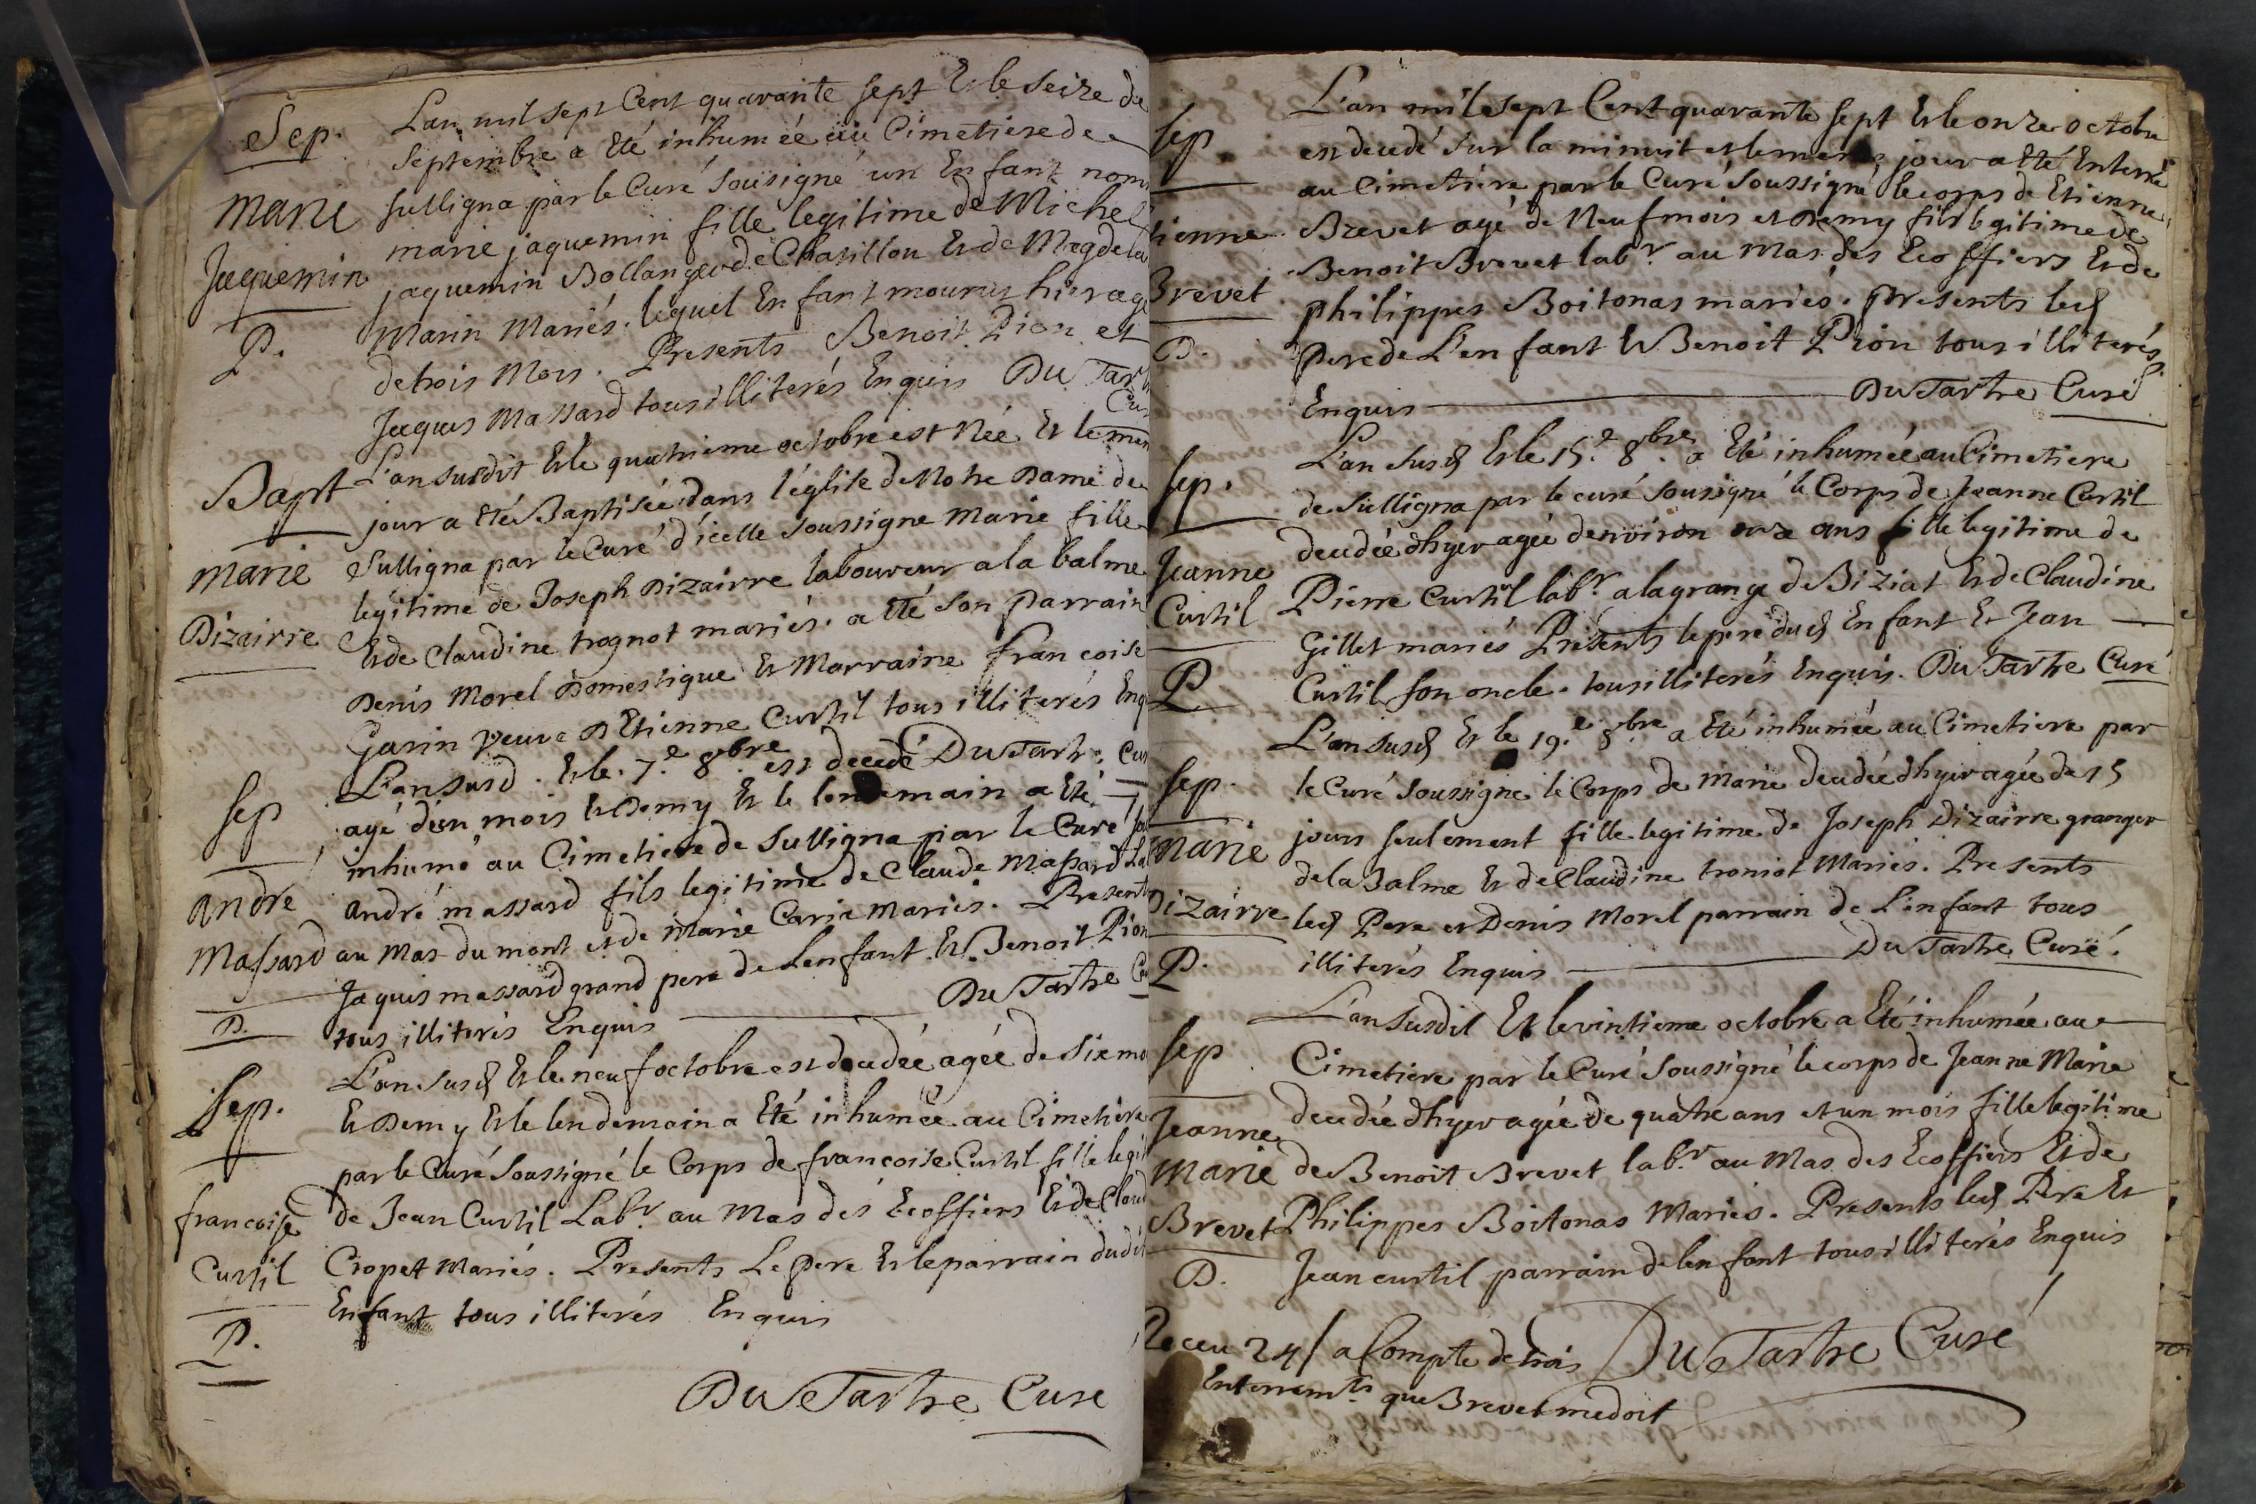 Sep.
Marie
Jaquemin
P.
L'an mil sept Cent quarante sept Et le seize de
Septembre a Eté inhumée au Cimetiere de
Sulligna par le Curé Sousigné un Enfant nom
marie jaquemin fille legitime de Michel
jaquemin Bollanger de Chatillon Et de Magdela
Marin Mariés. lequel Enfant mourut hier agé
de trois Mois. Presents Benoit Pion et
Jaques Massard tous illiterés Enquis Du Tart
Cur
Bapt
Marie
Dizairre
L'an susdit Et le quatrieme octobre est Née Et le mem
jour a Eté Baptisée dans l'église de Notre Dame de
Sulligna par le Curé d'icelle soussigne Marie fille
legitime de Joseph Dizairre laboureur a la balme
Et de Claudine trognot mariés. a Eté son parrain
Denis Morel Domestique Et Marraine francoise
Garin veuve D'Etienne Curtil tous illiterés Enq
Du Tartre Cur
Sep
andre
Massard
P.
L'an susd. Et le 7.e 8.bre est decedé
agé d'un mois Et Demy Et le lendemain a Eté
inhumé au Cimetiere de Sulligna par le Curé sou
andré massard fils legitime de Claude Massard Lab
au Mas du mont et de Marie Carie mariés. Present
Jaques massard grand pere de Lenfant Et Benoit Pion
tous illiterés Enquis Du Tartre Cu
Sep.
francoise
Curtil
P.
L'an susd Et le neuf octobre est decedée agée de six mo
Et Demy Et le lendemain a Eté inhumée au Cimetiere
par le Curé Soussigné le Corps de francoise Curtil fille legit
de Jean Curtil Labr. au Mas des Ecoffiers Et de Claud
Ciopet Mariés. Presents Le Pere Et le parrain dudit
Enfant tous illiterés Enquis
Du Tartre Cure
Sep.
tienne
Brevet
P.
L'an mil sept Cent quarante sept Et le onze octobre
est decedé sur la minuit et le meme jour a Eté Enterré
au Cimetiere par le Curé Soussigné le corps de Etienne
Brevet agé de Neuf mois et Demy fils legitime de
Benoit Brevet labr. au Mas des Ecoffiers Et de
philippes Boitonas mariés. Presents led
Pere de L'enfant Et Benoit Pion tous illiterés
Enquis Du Tartre Curé
Sep.
Jeanne
Curtil
P
L'an susd Et le 15.e 8.bre a Eté inhumée au Cimetiere
de Sulligna par le curé sousigné le Corps de Jeanne Curtil
decedée dhyer agée denviron onze ans fille legitime de
Pierre Curtil labr. a la grange de Biziat Et de Claudine
Gillet mariés Presents le pere dud Enfant Et Jean
Curtil son oncle. tous illiterés Enquis. Du Tartre Curé
Sep.
Marie
Dizairre
P.
L'an susd Et le 19.e 8.bre a Eté inhumée au Cimetiere par
le Curé Soussigné le Corps de Marie decedée dhyer agée de 15
jours seulement fille legitime de Joseph Dizairre granger
de la Balme Et de Claudine troniot Mariés. Presents
led Pere et Denis Morel parrain de L'enfant tous
illiterés Enquis Du Tartre Curé.
Sep
Jeanne
Marie
Brevet
P.
L'an susdit Et le vintieme octobre a Eté inhumée au
Cimetiere par le Curé Soussigné le corps de Jeanne Marie
decedée dhyer agée de quatre ans et un mois fille legitime
de Benoit Brevet labr. au Mas des Ecoffiers Et de
Philippes Boitonas Mariés. Presents led Pere Et
Jean curtil parrain de lenfant tous illiterés Enquis
Du Tartre Curé
Receu 24 s a Compte de trois
Enterremts. que Brevet me doit